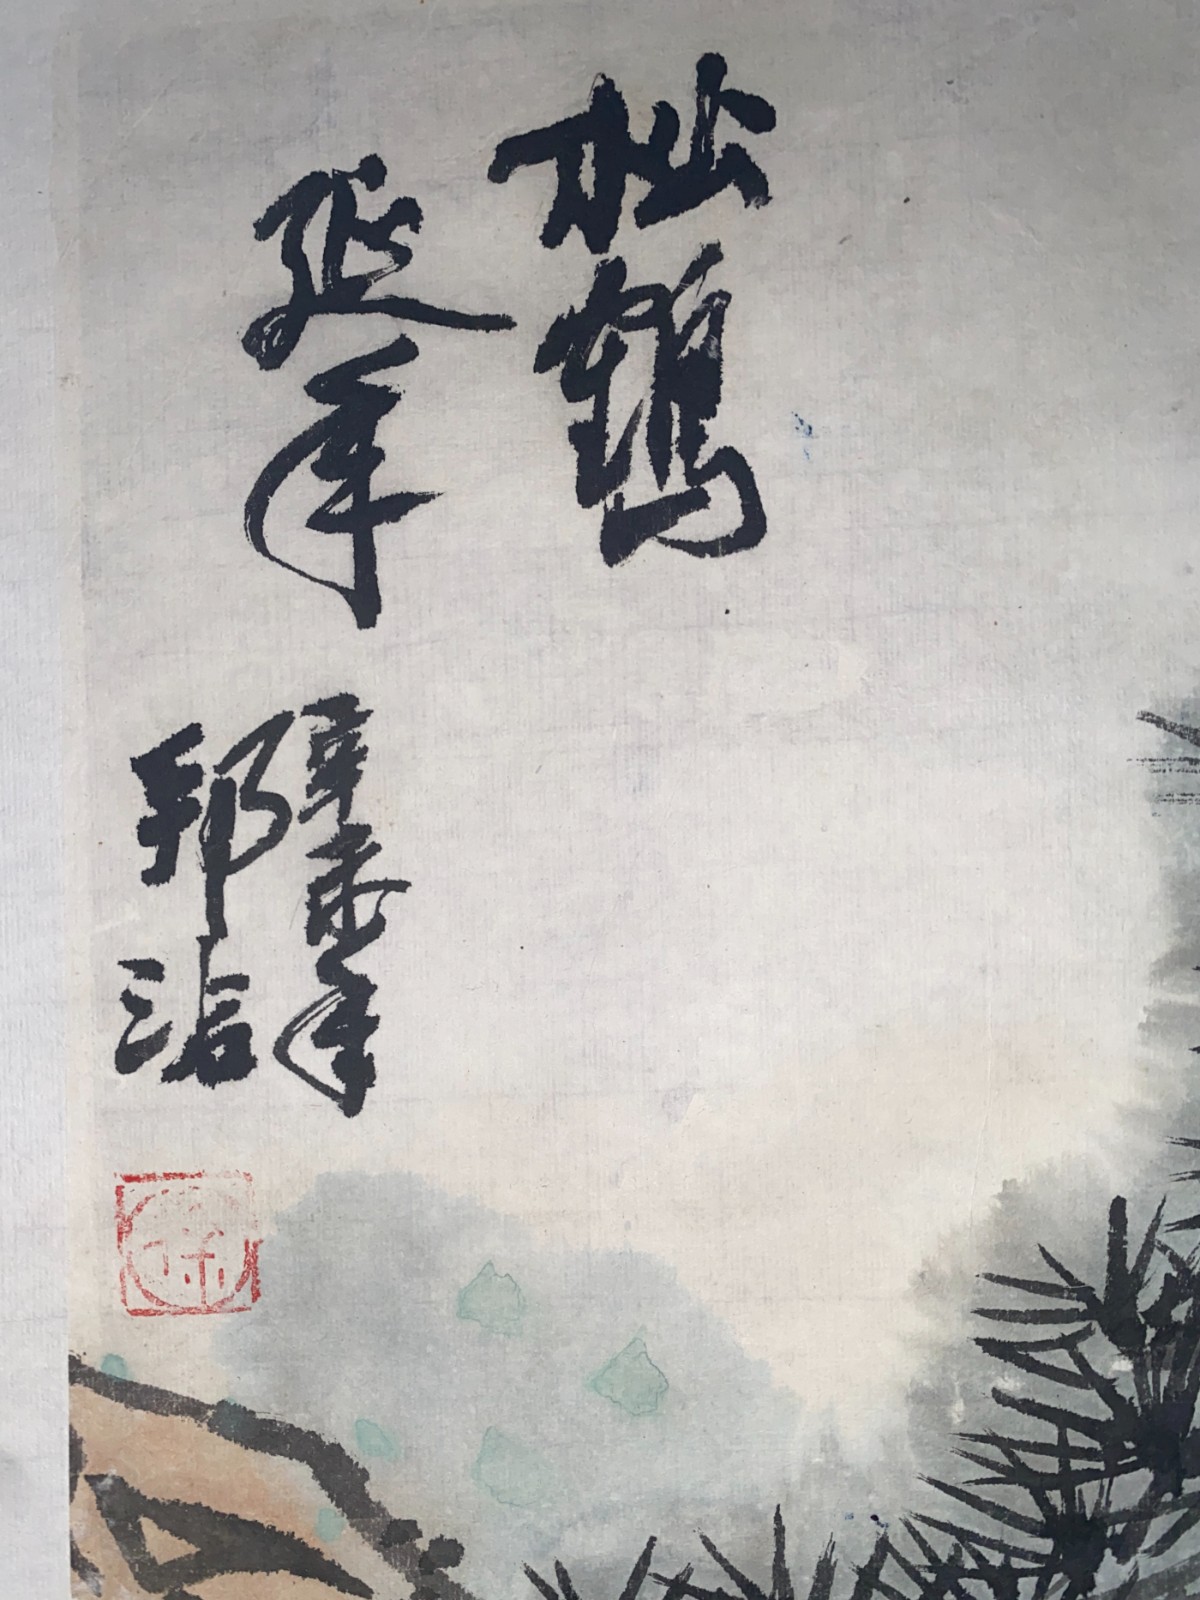 松鶴
延年
辛未年
邦治